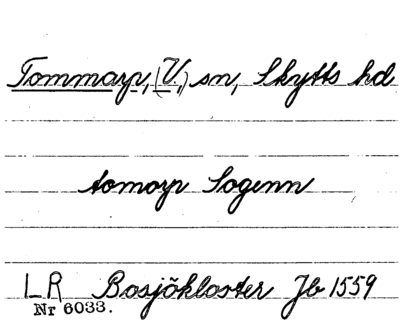 Tommarp, (V.) sn, Skytts hd
tomorp Sogenn
LR Bosjökloster Jb 1559
Nr 6033.